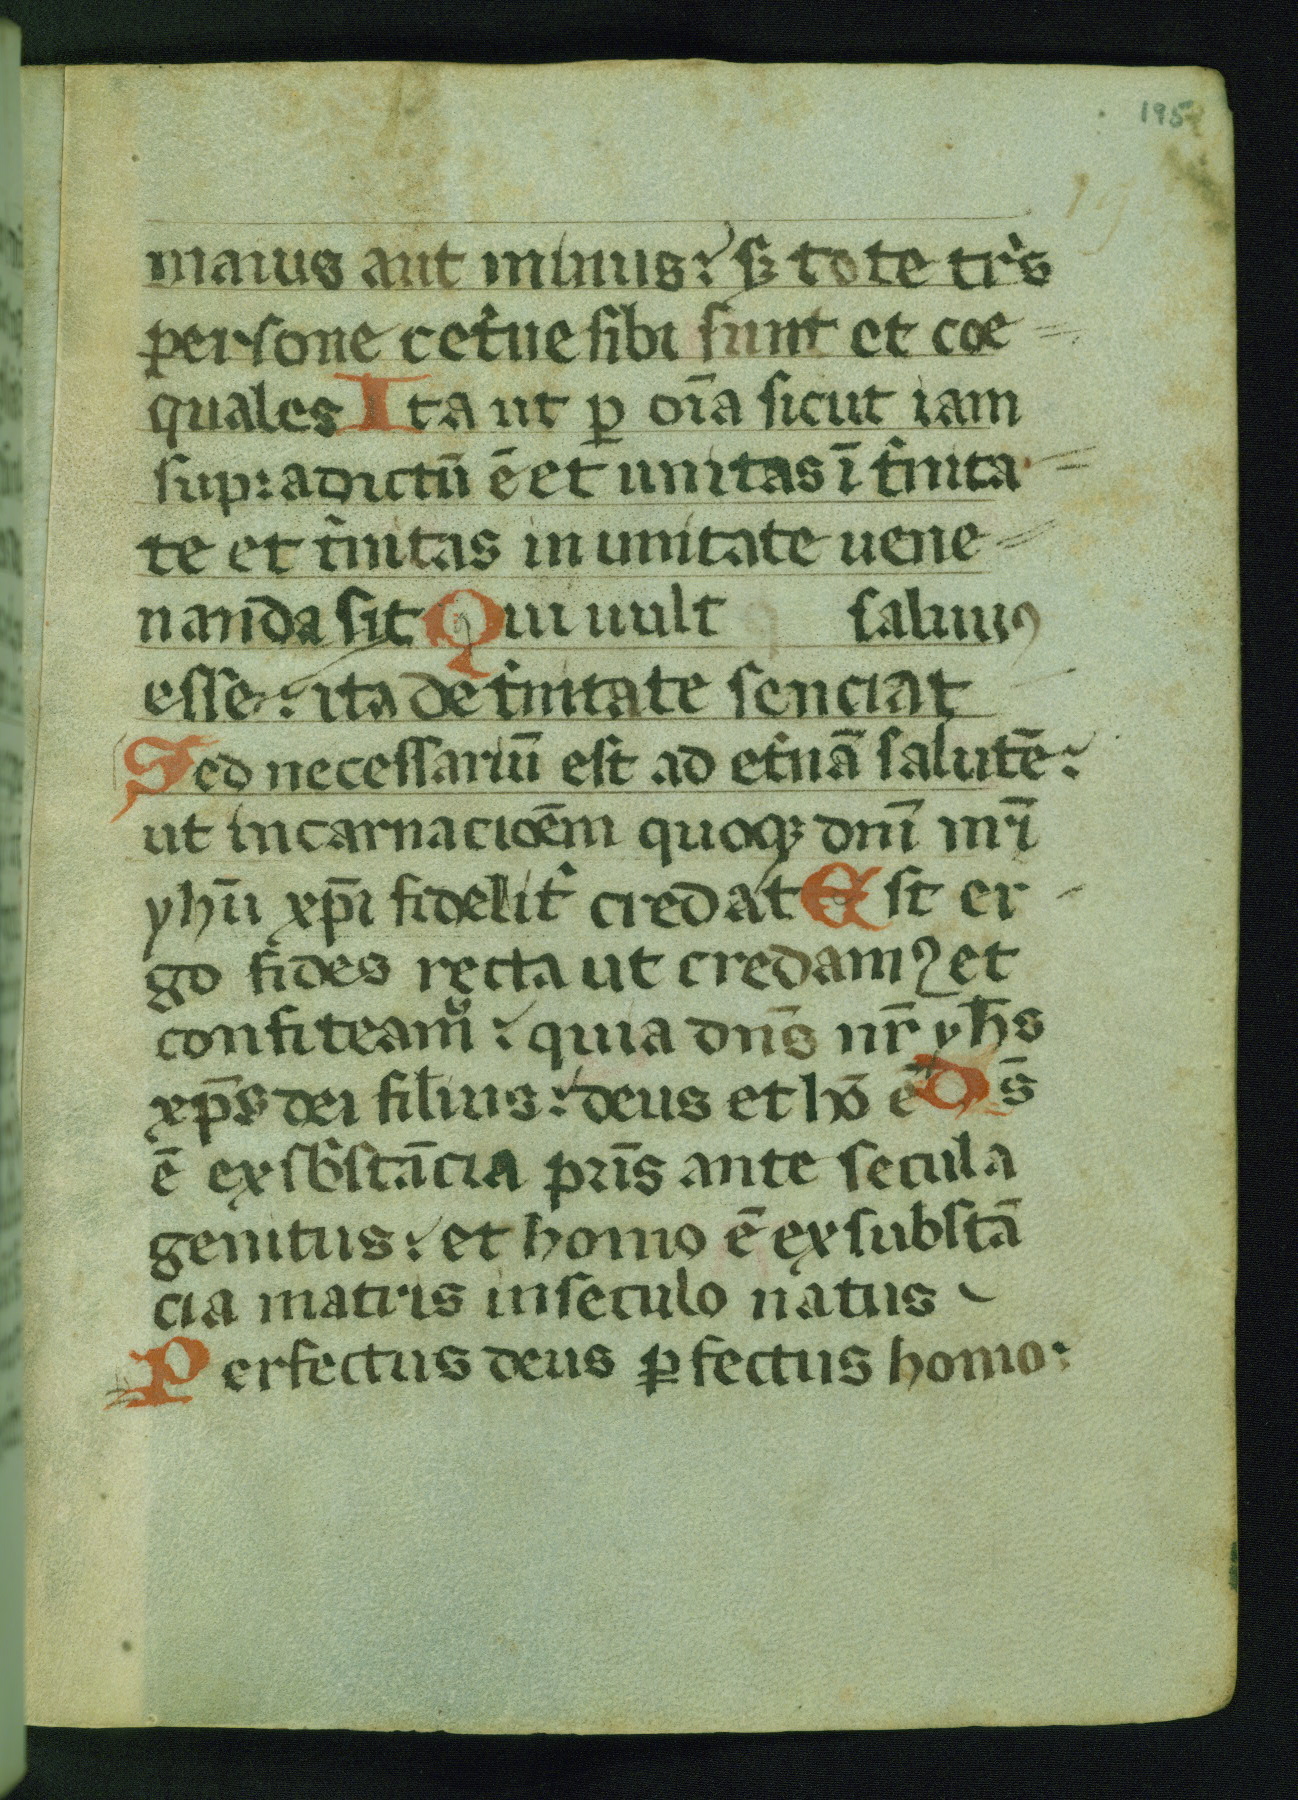 195
maius aut minus: sꝫ tote tr̾s
persone cet̾ne sibi sunt et coe=
quales Ita ut ꝑ oīa sicut iam
sup:adictū ē et unitas ī t̾nita=
te et t̾nitas in unitate uene=
nanda sit Qui uult saluuꝰ
esse: ita de t̾nitate senciat
Sed necessariū est ad et̾nā salutē:
ut incarnacioēm quoqꝫ dnī nr̄i
yhū xp̄i fidelit̾ credat Est er-
go fides recta ut credamꝰ et
confiteamᷣ: quia dn̄s nr̄ yh̄s
xp̄s dei filius: deus et hō ē Ds̄
ē ex sb̄stācia pr̄is ante secula
genitus: et homo ē ex substā
cia matris in seculo natus
Perfectus deus ꝑfectus homo: